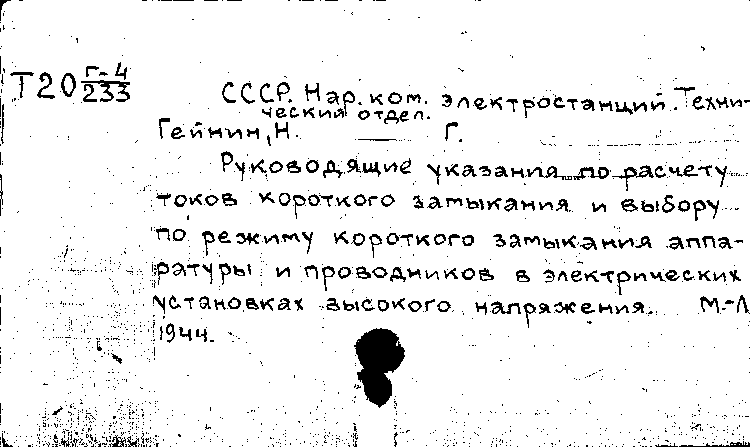 Т20 Г-4/233
СССР. Нар. ком. электростанций. Техни-
ческий отдел.
Гейнин, Н. — Г.
Руководящие указания по расчету
токов короткого замыкания и выбору
по режиму короткого замыкания аппа-
ратуры и проводников в электрических
установках высокого напряжения. М.-Л
1944.